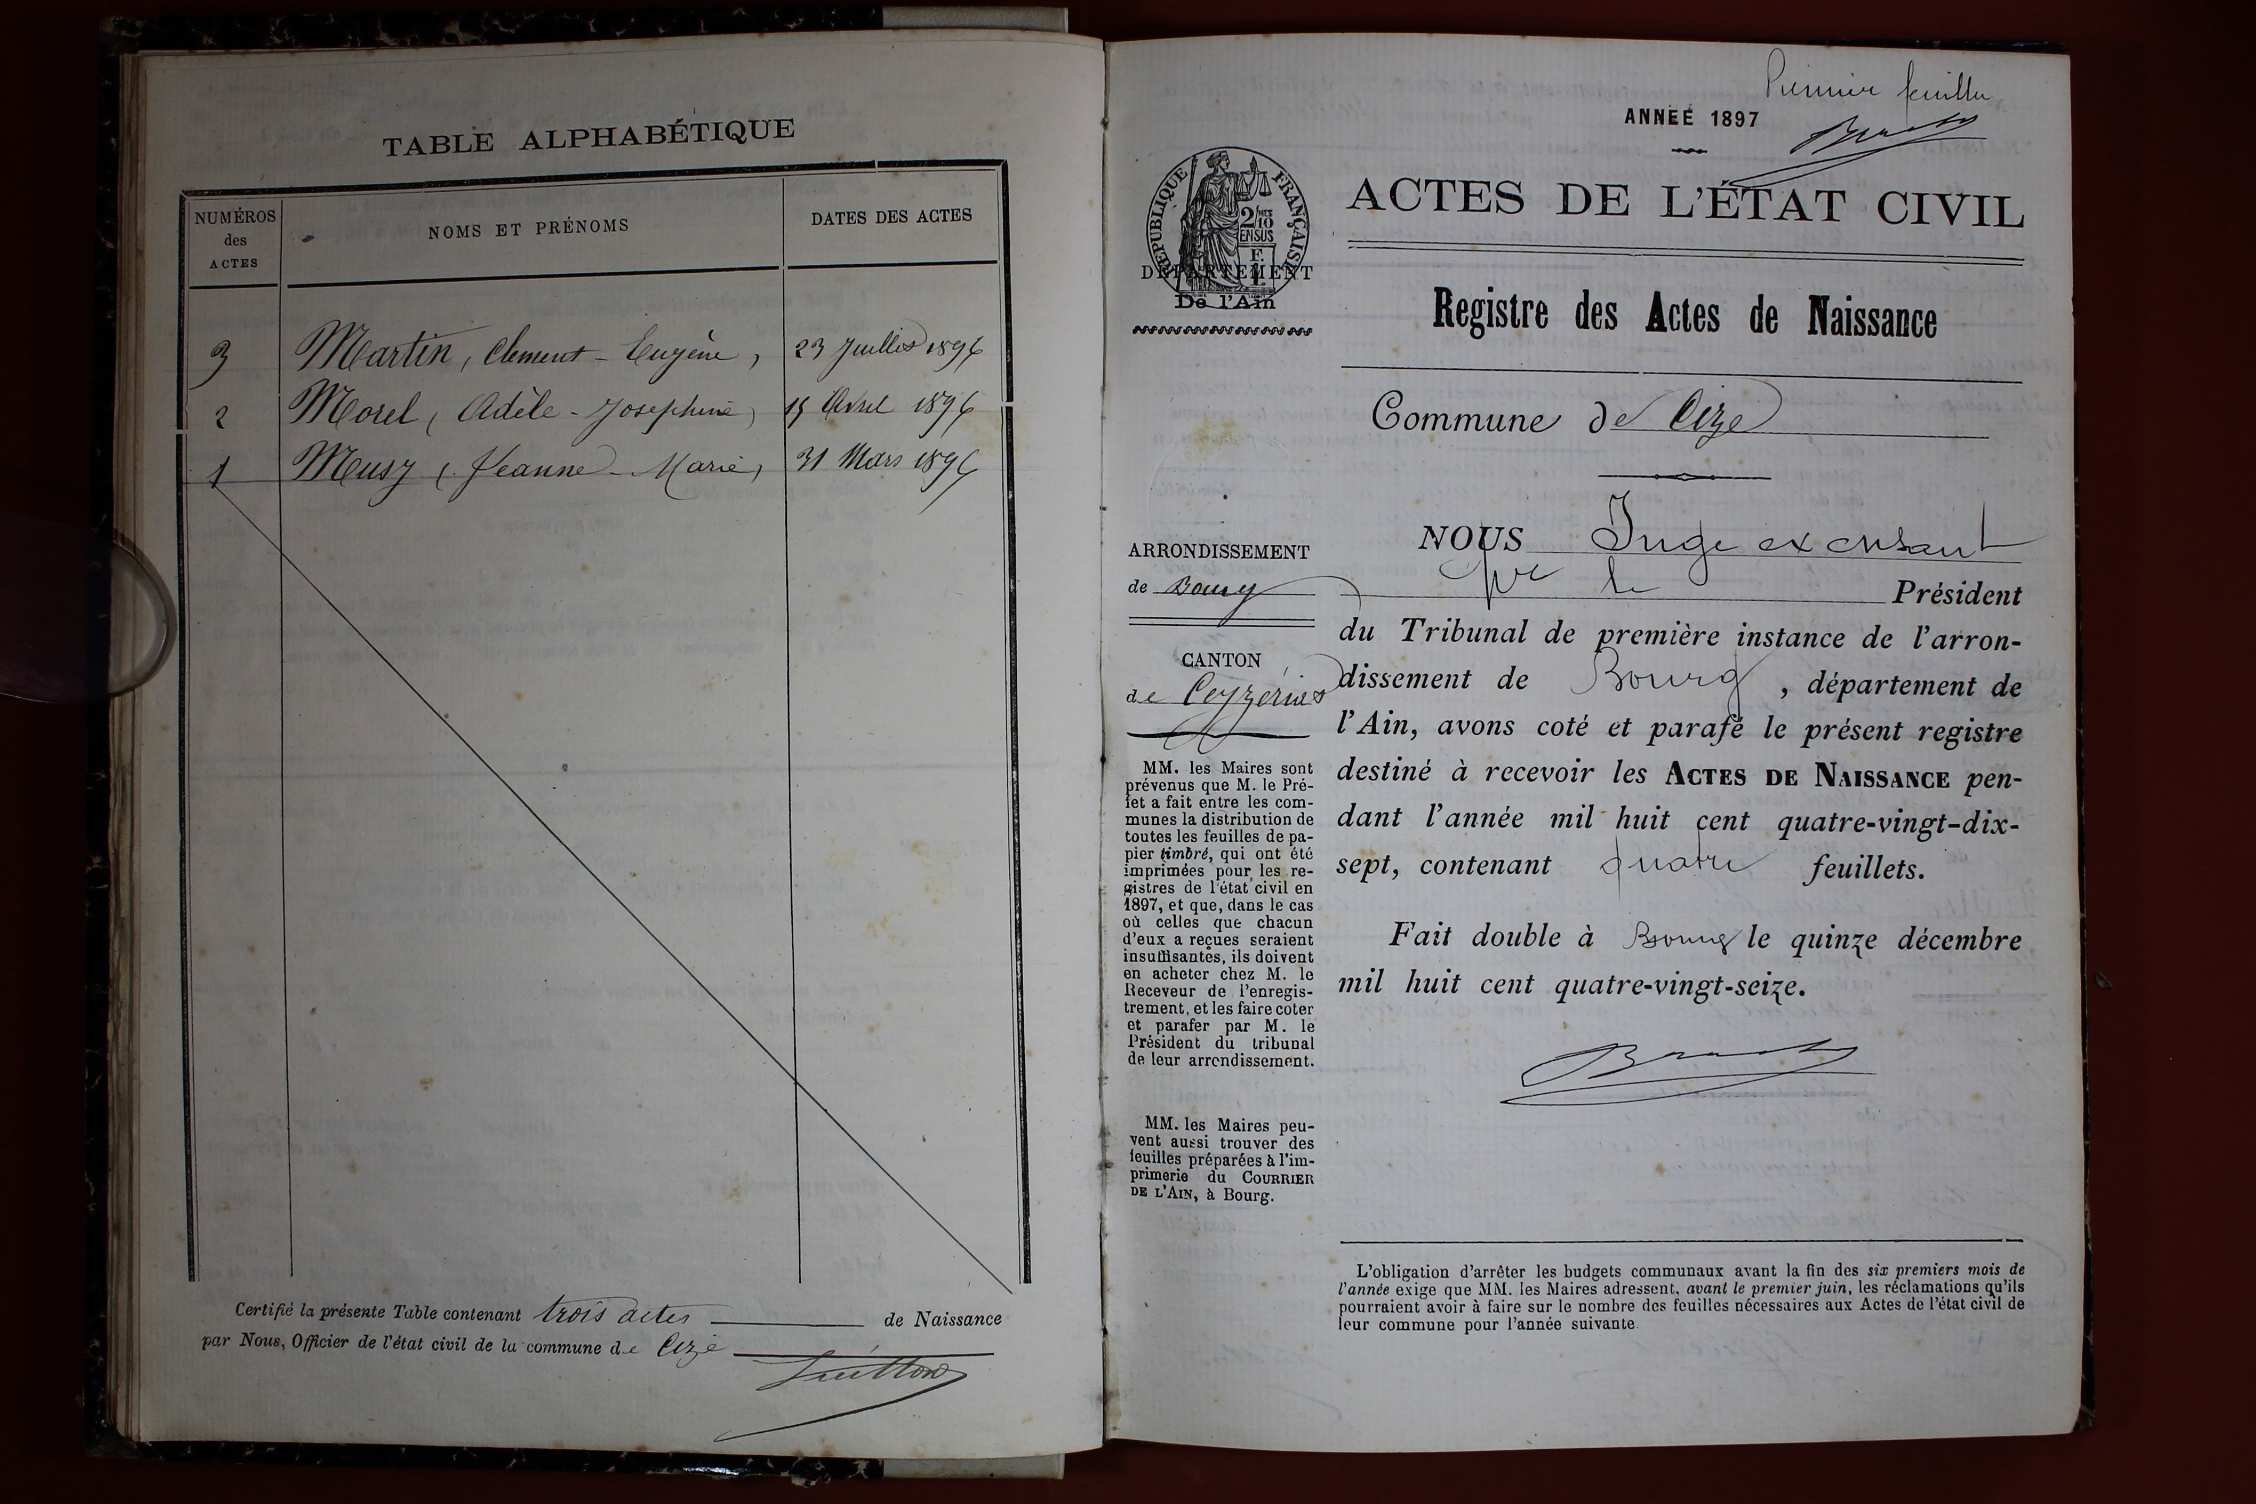 TABLE ALPHABÉTIQUE
NUMÉROS des ACTES
NOMS ET PRÉNOMS
DATES DES ACTES
3 Martin, Clement-Eugène, 23 Juillet 1896
2 Morel, Adèle-Josephine, 15 Avril 1896
1 Musy, Jeanne-Marie, 31 Mars 1896
Certifié la présente Table contenant trois actes de Naissance
par Nous, Officier de l'état civil de la commune de Cize
Premier feuillet
ANNÉE 1897
RÉPUBLIQUE FRANÇAISE
2/10 EN SUS
DÉPARTEMENT
De l'Ain
ACTES DE L'ÉTAT CIVIL
Registre des Actes de Naissance
Commune de Cize
ARRONDISSEMENT
de Bourg
CANTON
de Ceyzériat
MM. les Maires sont
prévenus que M. le Pré-
fet a fait entre les com-
munes la distribution de
toutes les feuilles de pa-
pier timbré, qui ont été
imprimées pour les re-
gistres de l'état civil en
1897, et que, dans le cas
où celles que chacun
d'eux a reçues seraient
insuffisantes, ils doivent
en acheter chez M. le
Receveur de l'enregis-
trement, et les faire coter
et parafer par M. le
Président du tribunal
de leur arrondissement.
MM. les Maires peu-
vent aussi trouver des
feuilles préparées à l'im-
primerie du COURRIER
DE L'AIN, à Bourg.
NOUS Juge ex
pr le Président
du Tribunal de première instance de l'arron-
dissement de Bourg, département de
l'Ain, avons coté et parafé le présent registre
destiné à recevoir les ACTES DE NAISSANCE pen-
dant l'année mil huit cent quatre-vingt-dix-
sept, contenant quatre feuillets.
Fait double à Bourg le quinze décembre
mil huit cent quatre-vingt-seize.
L'obligation d'arrêter les budgets communaux avant la fin des six premiers mois de
l'année exige que MM. les Maires adressent, avant le premier juin, les réclamations qu'ils
pourraient avoir à faire sur le nombre des feuilles nécessaires aux Actes de l'état civil de
leur commune pour l'année suivante